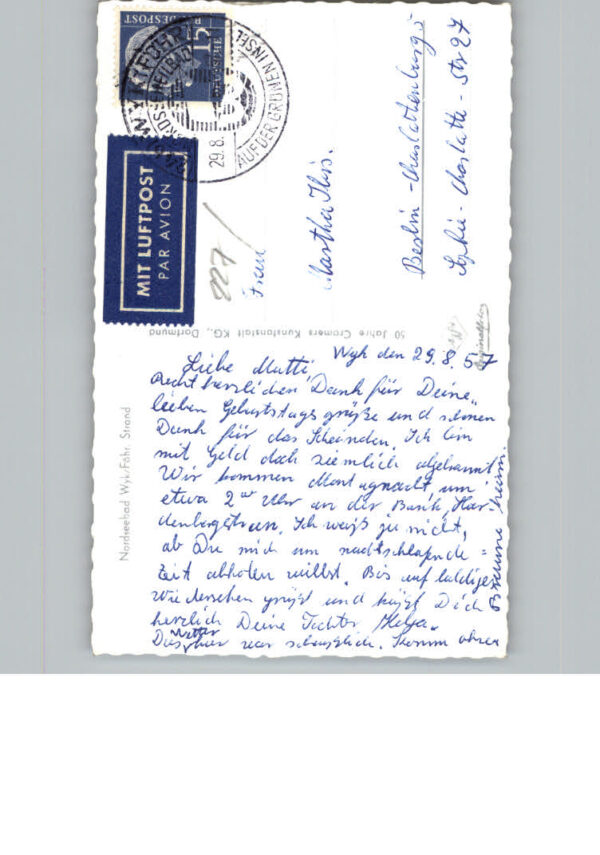 Wyk den 29.8.57
Liebe Mutti,
Recht herzlichen Dank für Deine
lieben Geburtstagsgrüße und schönen
Dank für das Scheinchen. Ich bin
mit Geld doch ziemlich abgebrannt.
Wir kommen Montagnacht, um
etwa 2 Uhr an der Bank, Har-
denbergstr. an. Ich weiß ja nicht,
ob Du mich um nachtschlafende
Zeit abholen willst. Bis auf baldiges
Wiedersehen grüßt und küßt Dich
herzlich Deine Tochter
Das Wetter hier war scheusslich. Komme ohne
Bräune heim.
Nordseebad Wyk/Föhr, Strand
50 Jahre Cramers Kunstanstalt KG., Dortmund
MIT LUFTPOST
PAR AVION
BUNDESPOST
DEUTSCHE
15
29.8.
AUF DER GRÜNEN INSEL
227/
Frau
Martha
Berlin-Charlottenburg 5
Sophie-Charlotte-Str 27